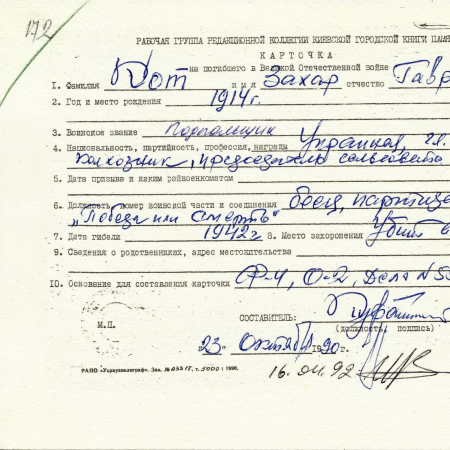 172
РАБОЧАЯ ГРУППА РЕДАКЦИОННОЙ КОЛЛЕГИИ КИЕВСКОЙ ГОРОДСКОЙ КНИГИ ПАМЯ
КАРТОЧКА
на погибшего в Великой Отечественной войне
1. Фамилия Кот имя Захар отчество Гавр
2. Год и место рождения 1914 г.
3. Воинское звание Подпольщик
4. Национальность, партийность, профессия, награды Украинец,
Колхозник, председатель сельсовета
5. Дата призыва и каким райвоенкоматом
6. Должность, номер воинской части и соединения боец, партиза
„Победа или смерть"
7. Дата гибели 1942 г 8. Место захоронения Убит в
9. Сведения о родственниках, адрес местительства
10. Основание для составления карточки Ф-4, О-2, Дело N 55
СОСТАВИТЕЛЬ:
(должность, подпись)
М.П.
"23" Октября 1990г.
РАПО «Укрвузполиграф». Зак. № 0551Т, т. 5000, 1990.
16.04.92